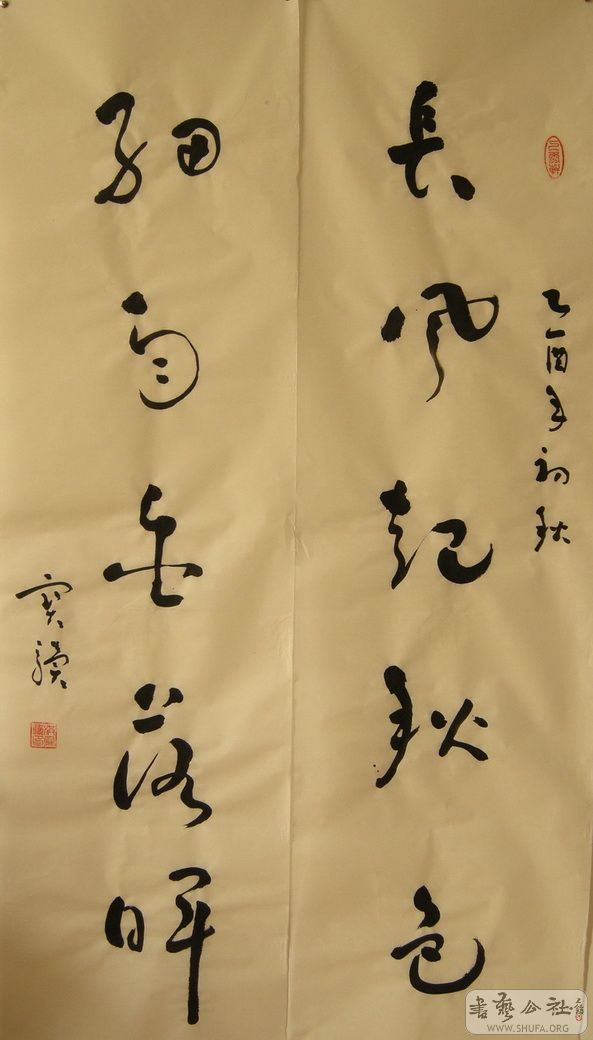 乙酉年初秋
長風起秋色
細雨含落暉
書藝公社
WWW.SHUFA.ORG